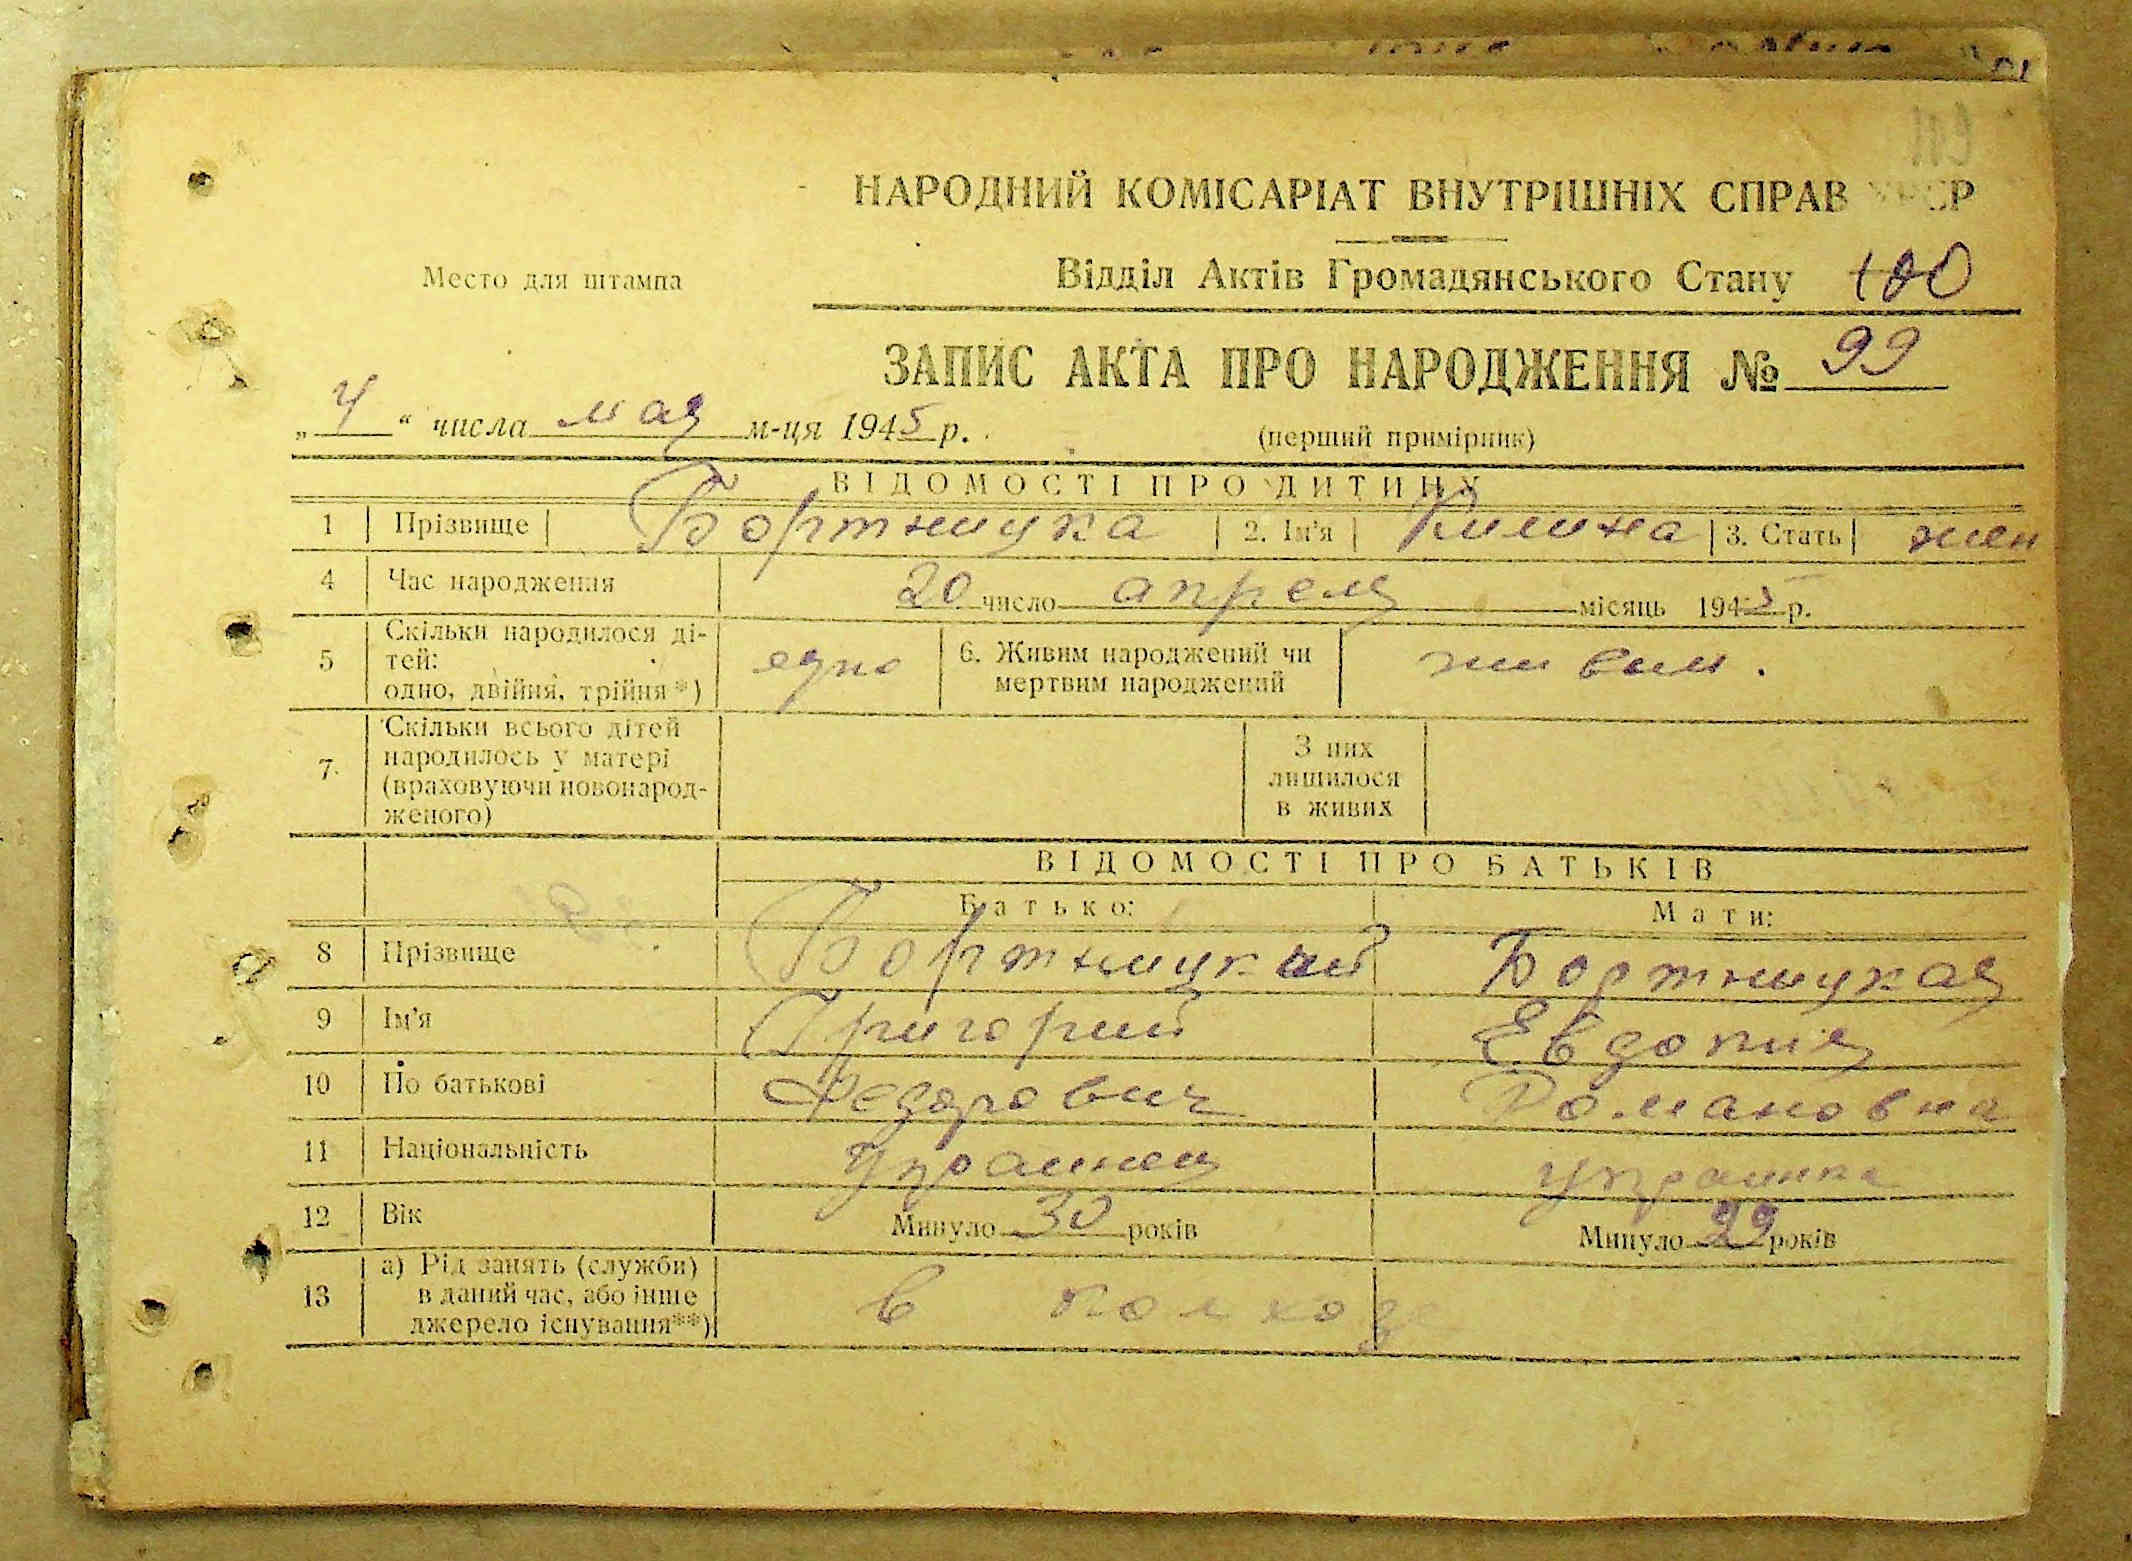 НАРОДНИЙ КОМІСАРІАТ ВНУТРІШНІХ СПРАВ УРСР
Место для штампа
Відділ Актів Громадянського Стану 100
ЗАПИС АКТА ПРО НАРОДЖЕННЯ № 99
„ 4 “ числа мая м-ця 1945 р.
(перший примірник)
ВІДОМОСТІ ПРО ДИТИНУ
1 Прізвище Бортницка 2. Ім'я Килина 3. Стать жен
4 Час народження 20 число апреля місяць 1945 р.
5 Скільки народилося ді-
тей:
одно, двійня, трійня*) едно
6. Живим народжений чи
мертвим народжений живым.
7. Скільки всього дітей
народилось у матері
(враховуючи новонарод-
женого)
З них
лишилося
в живих
ВІДОМОСТІ ПРО БАТЬКІВ
Батько: Мати:
8 Прізвище Бортницкий Бортницкая
9 Ім'я Григорий Евдокия
10 По батькові Федорович Романовна
11 Національність Украинец украинка
12 Вік Минуло 30 років Минуло 29 років
13 а) Рід занять (служби)
в даний час, або інше
джерело існування**) в колхозе